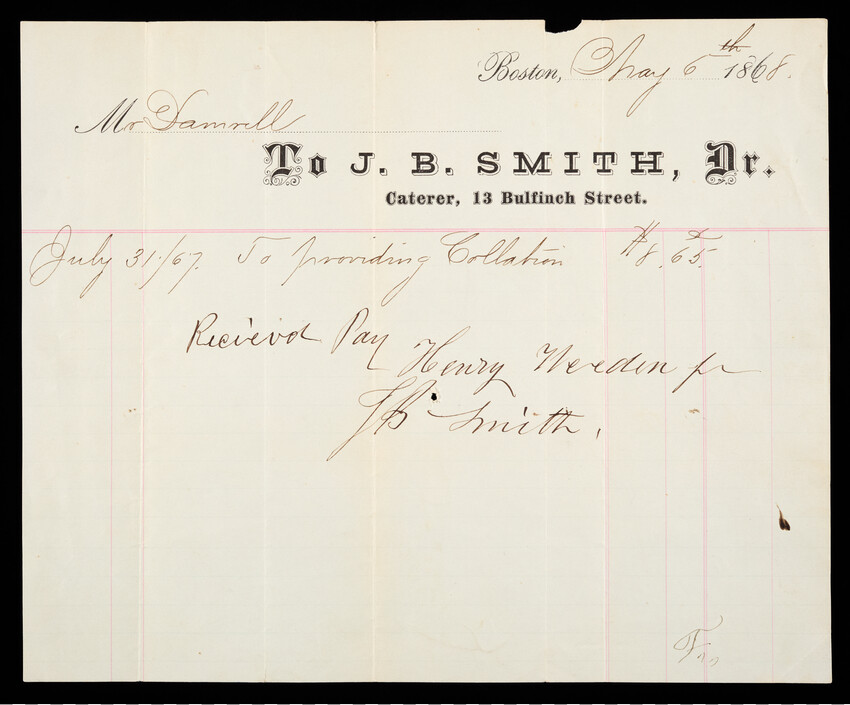 Boston, May 6th 1868.
Mr Damrell
To J. B. SMITH, Dr.
Caterer, 13 Bulfinch Street.
July 31/67. To providing Collation $8.65
Recieivd Pay
Henry Weeden pr
JB Smith.